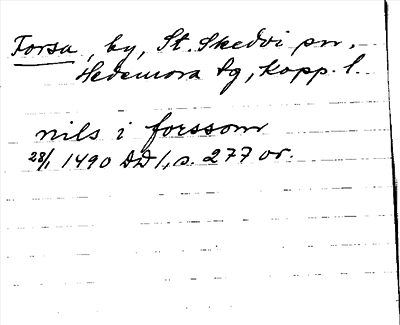 Forsa, by, St. Skedvi sn,
Hedemora tg, Kopp. l.
nils i forssom
28/1 1490 DD 1, s. 277 or.